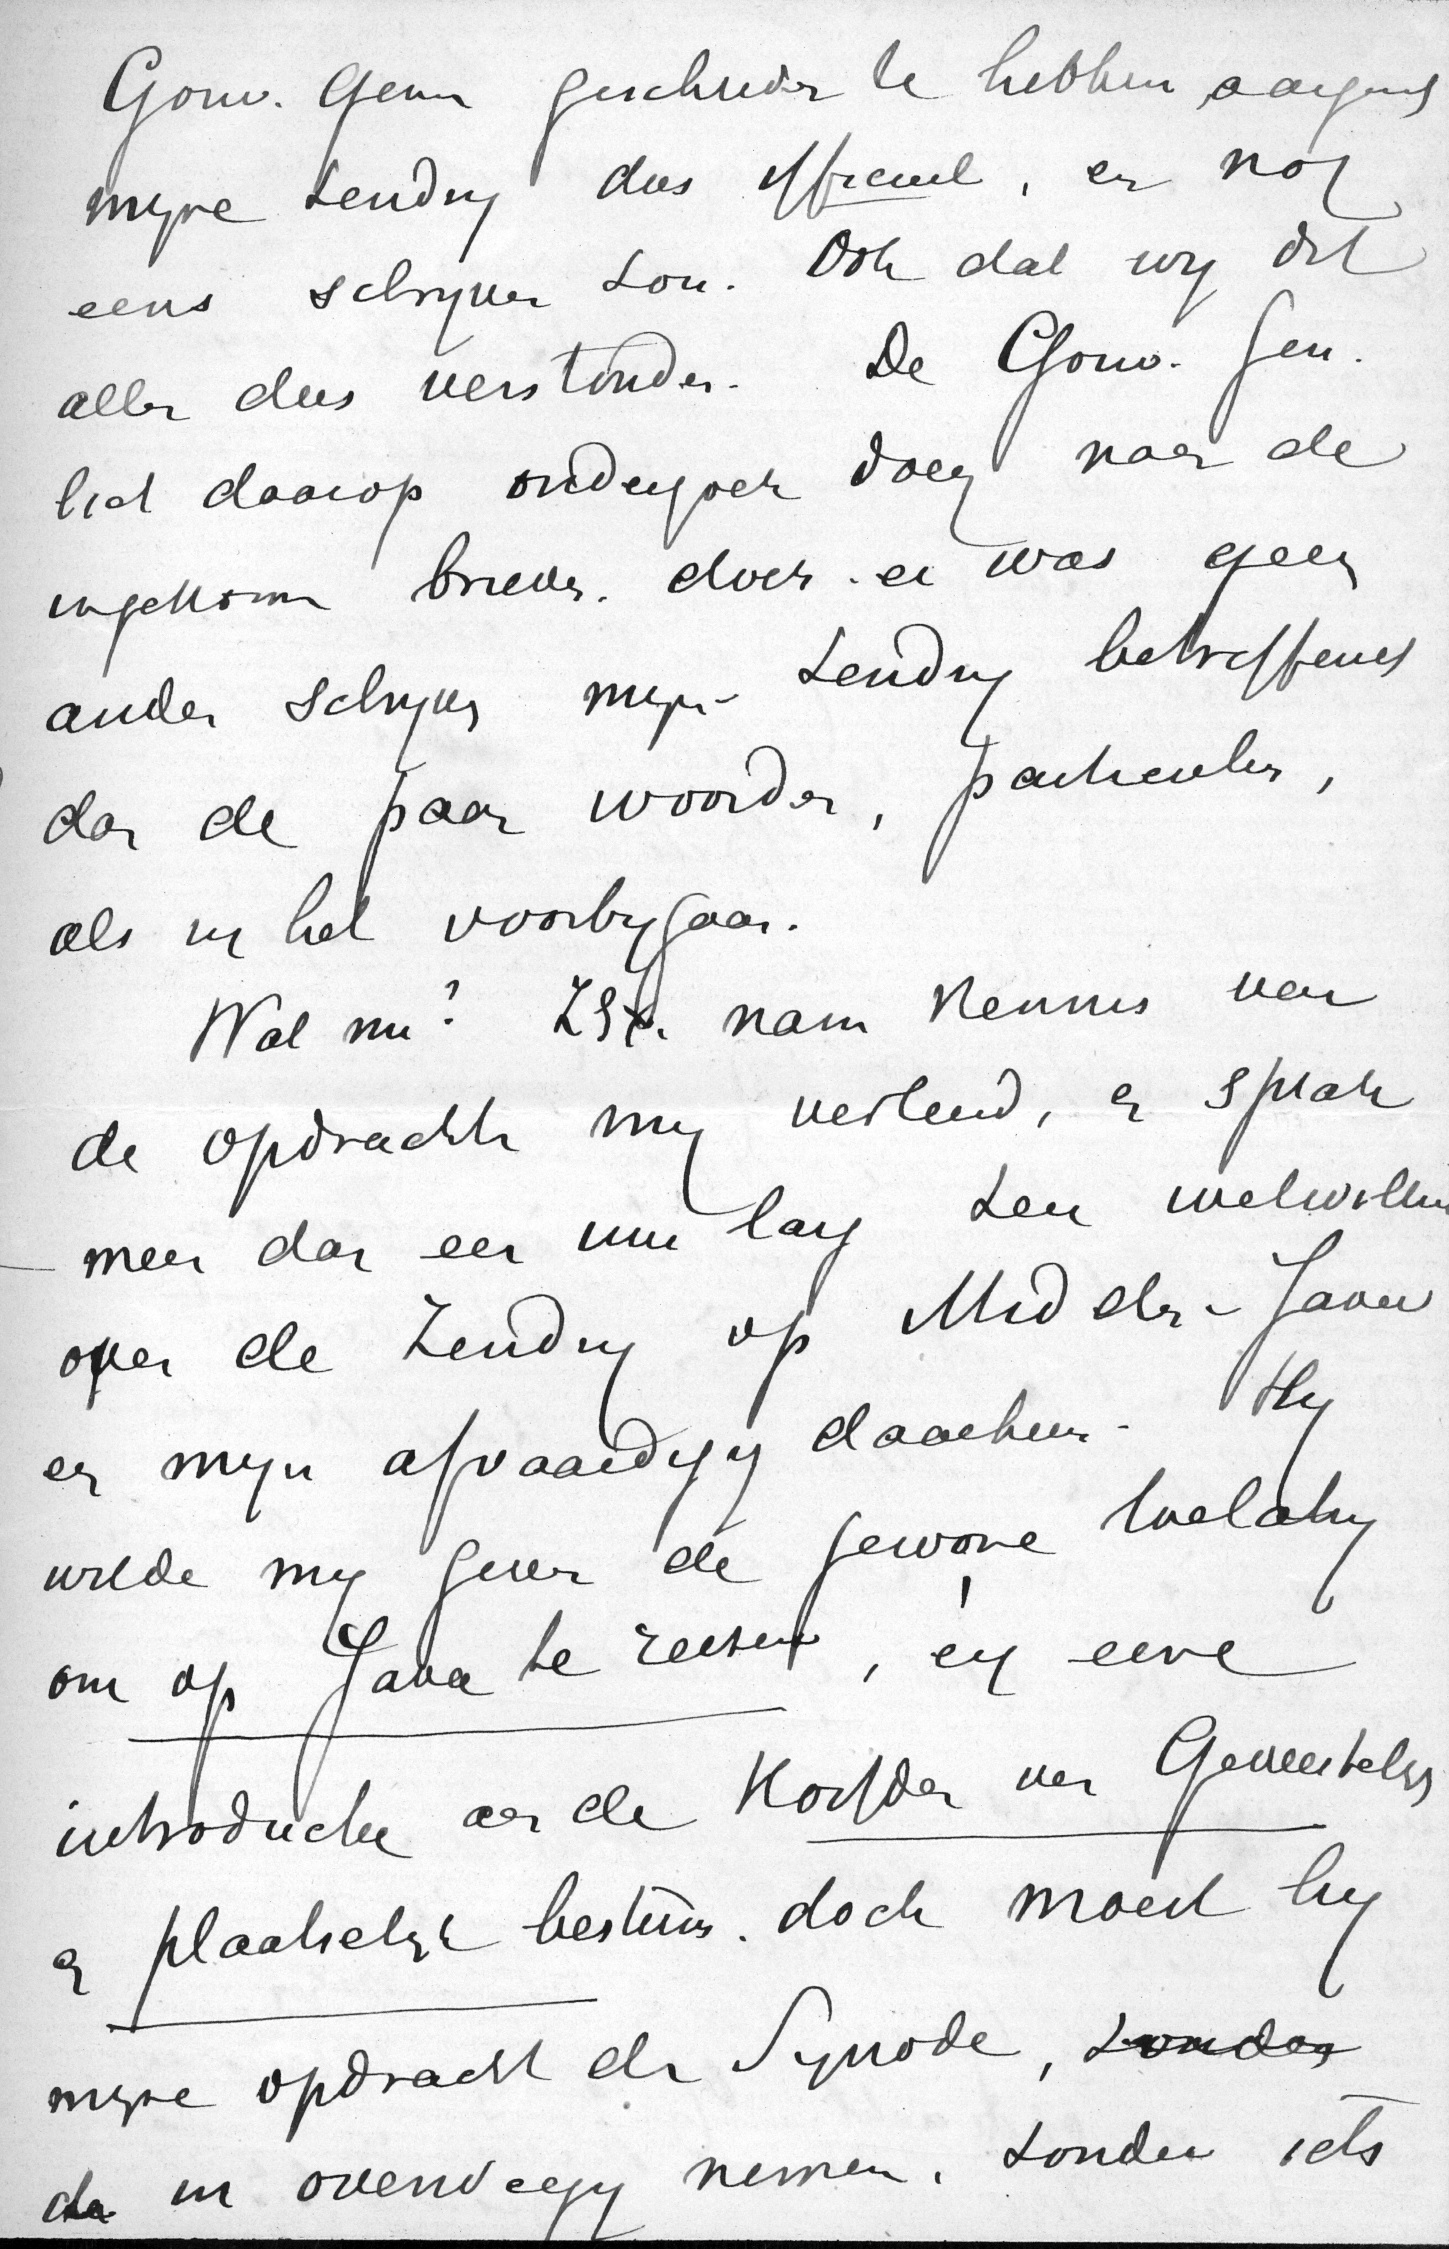 Gouv. Gen. geschreven te hebben aangaande
mijne zending dus officieel, en nog
eens schrijven zou. Ook dat wij dit
allen dus verstonden. De Gouv. Gen.
liet daarop onderzoek doen naar de
ingekomen brieven. doch er was geen
ander schrijven mijne zending betreffende
dan de paar woorden, particulier,
als in het voorbijgaan.
Wat nu? ZExc. nam kennis van
de opdracht mij verleend, en sprak
meer dan een uur lang zeer welwillend
over de Zending op Midden-Java
en mijn afvaardiging daarheen. Hij
wilde mij geven de gewone toelating
om op Java te reizen, en eene
introductie aan de Hoofden van Gewestelijk
en plaatselijk bestuur. doch moest hij
mijne opdracht der Synode, zonder
in overweging nemen, zonder iets